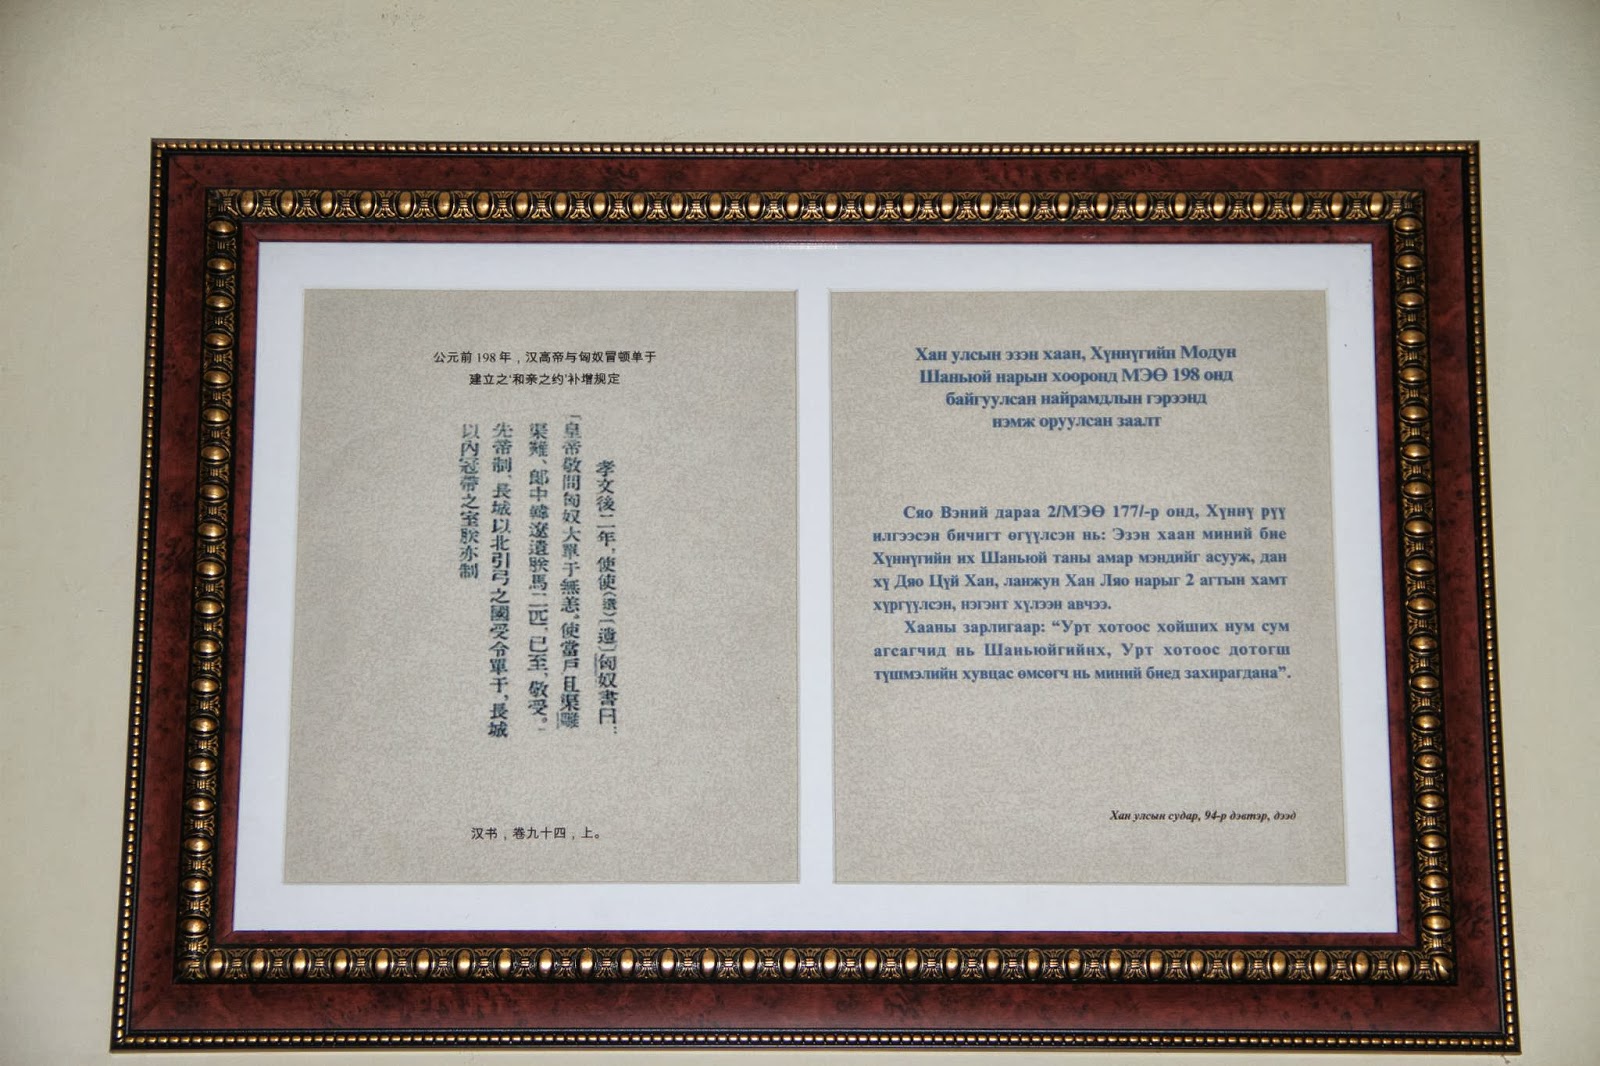 公元前 198 年，汉高帝与匈奴冒顿单于
建立之‘和亲之约’补增规定
孝文後二年，使使(遺)〔遺〕匈奴書曰：
「皇帝敬問匈奴大單于無恙。使當戶且渠雕
渠難、郎中韓遼遺朕馬二匹，已至，敬受。
先帝制，長城以北引弓之國受令單于，長城
以內冠帶之室朕亦制
汉书，卷九十四，上。
Хан улсын эзэн хаан, Хүннүгийн Модун
Шаньюй нарын хооронд МЭӨ 198 онд
байгуулсан найрамдлын гэрээнд
нэмж оруулсан заалт
Сяо Вэний дараа 2/МЭӨ 177/-р онд, Хүннү рүү
илгээсэн бичигт өгүүлсэн нь: Эзэн хаан миний бие
Хүннүгийн их Шаньюй таны амар мэндийг асууж, дан
хү Дяо Цүй Хан, ланжун Хан Ляо нарыг 2 агтын хамт
хүргүүлсэн, нэгэнт хүлээн авчээ.
Хааны зарлигаар: “Урт хотоос хойших нум сум
агсагчид нь Шаньюйгийнх, Урт хотоос дотогш
түшмэлийн хувцас өмсөгч нь миний биед захирагдана”.
Хан улсын судар, 94-р дэвтэр, дээд